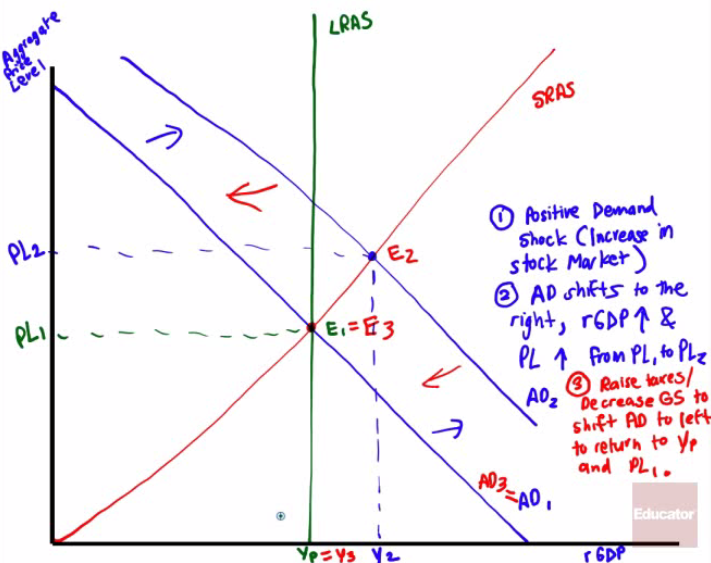 Aggregate
Price
Level
LRAS
SRAS
PL2
E2
PL1
E1 = E3
① Positive Demand
shock (Increase in
stock Market)
② AD shifts to the
right, rGDP ↑ &
PL ↑ from PL1 to PL2
③ Raise taxes/
Decrease GS to
shift AD to left
to return to Yp
and PL1.
AD2
AD3 = AD1
Educator
Yp = Y3
Y2
rGDP